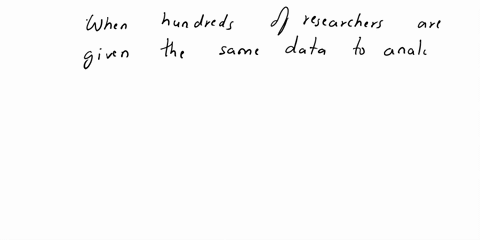 When hundreds of researchers are
given the same data to anal